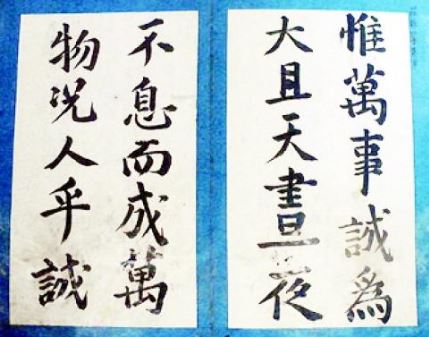 惟萬事誠爲
大且天晝夜
不息而成萬
物況人乎誠